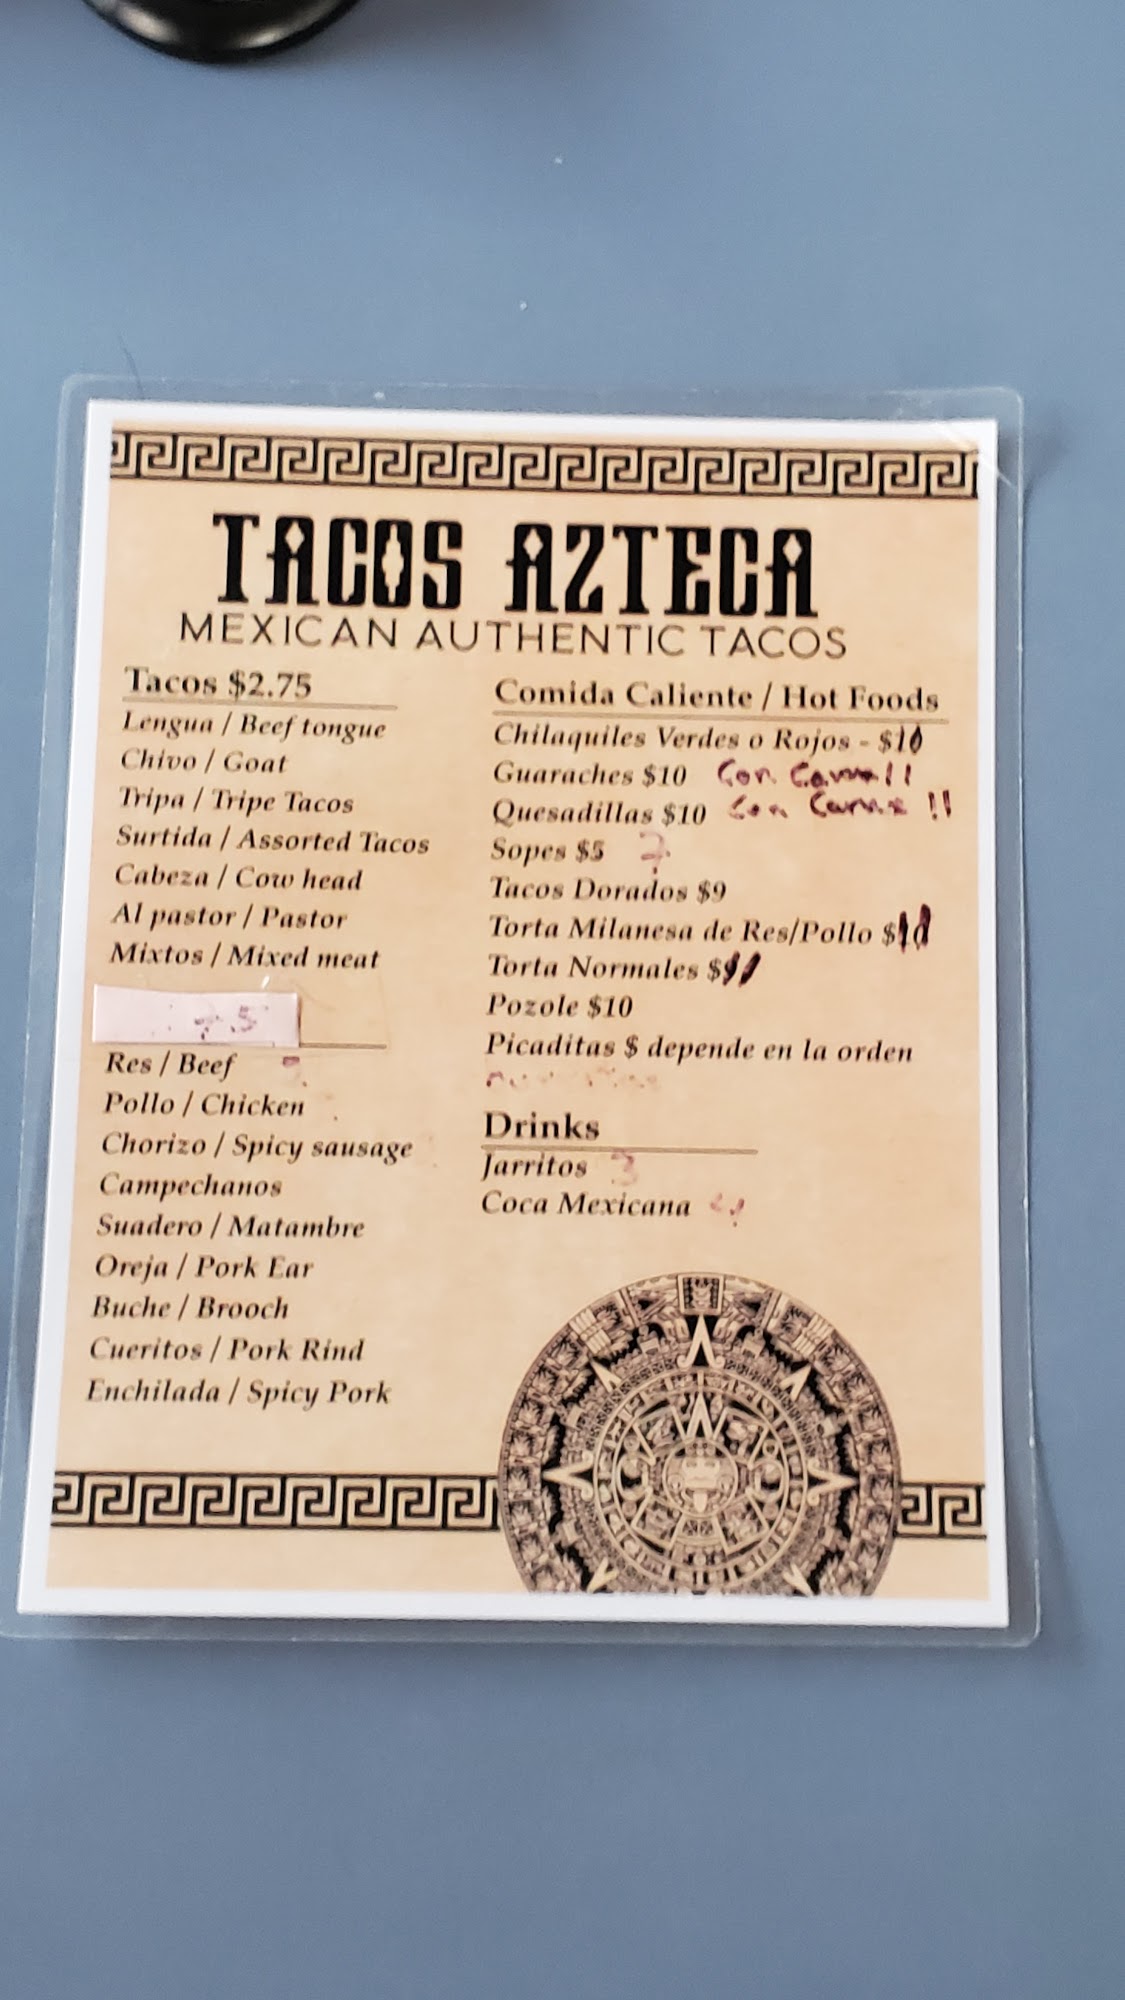 TACOS AZTECA
MEXICAN AUTHENTIC TACOS
Tacos $2.75
Lengua / Beef tongue
Chivo / Goat
Tripa / Tripe Tacos
Surtida / Assorted Tacos
Cabeza / Cow head
Al pastor / Pastor
Mixtos / Mixed meat
Res / Beef
Pollo / Chicken
Chorizo / Spicy sausage
Campechanos
Suadero / Matambre
Oreja / Pork Ear
Buche / Brooch
Cueritos / Pork Rind
Enchilada / Spicy Pork
Comida Caliente / Hot Foods
Chilaquiles Verdes o Rojos - $10
Guaraches $10 Con Carne!!
Quesadillas $10 Con Carne !!
Sopes $5 7
Tacos Dorados $9
Torta Milanesa de Res/Pollo $
Torta Normales $11
Pozole $10
Picaditas $ depende en la orden
Drinks
Jarritos 3
Coca Mexicana